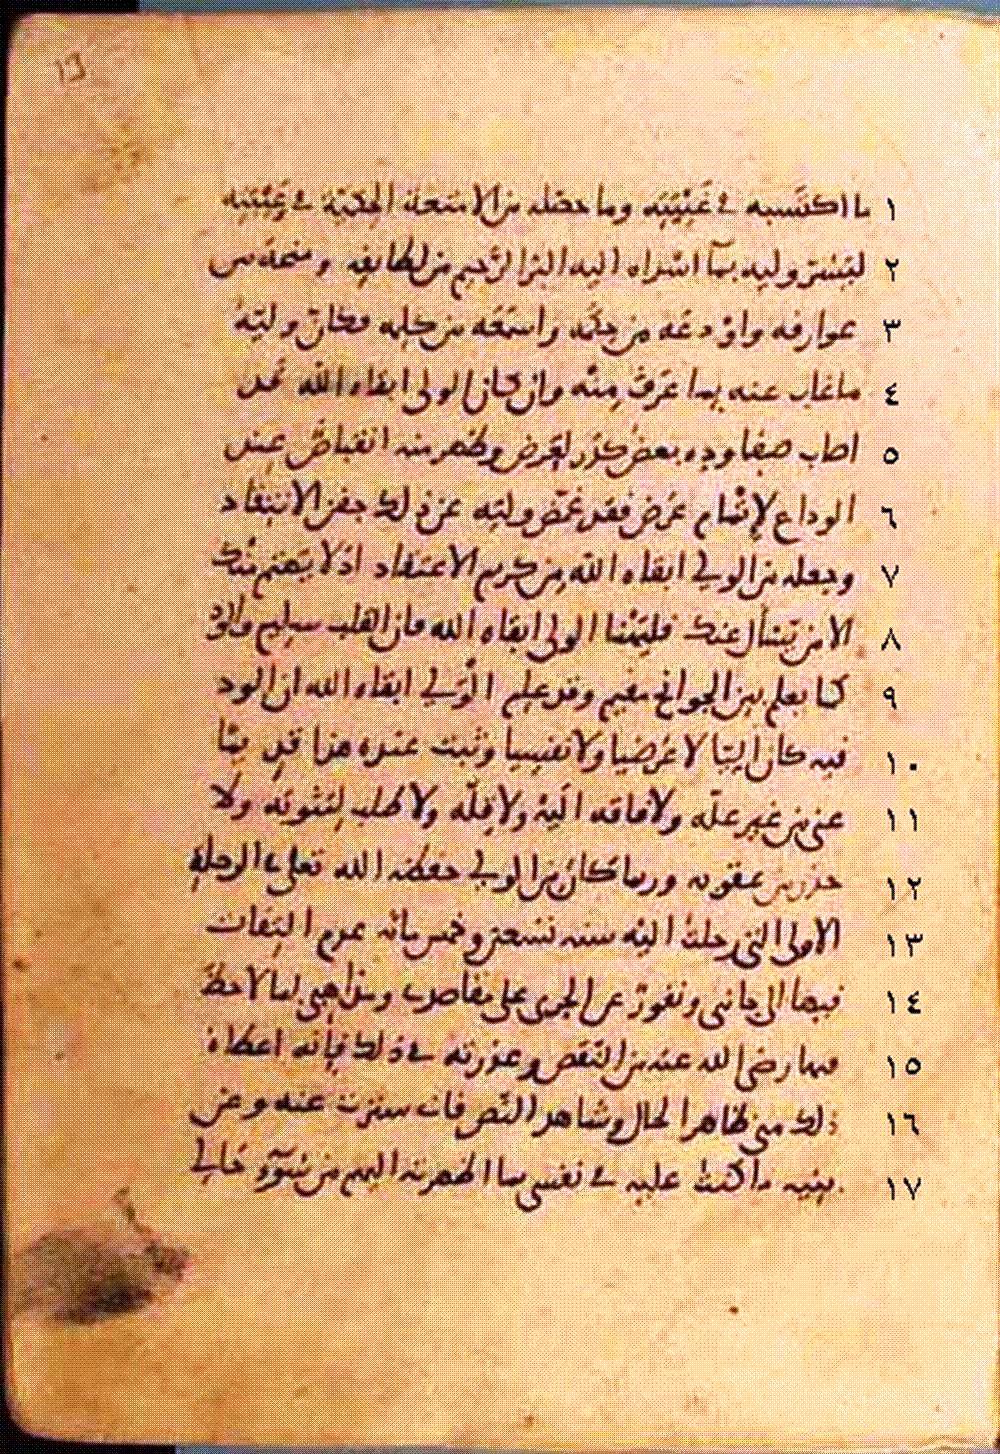 ما اكتسبه في غَيْبَتِه وما حصّله من الامتعة الحِكميّة في غَيْبَته ١
ليَسُرّ وليه بمآ اسْداه اليه البَرّ الرَّحيم من لطايفه ومنحه من ٢
عوارفه واوْدعَه من حِكَمه واسمَعَه من كلمه فكانّ وليّه ٣
ماغاب عنه بما عَرَفَ مِنْه وان كان الولي ابقاه الله قد ٤
اصاب صفا وده بعض كدَر لعَرَض وظهر منه انقباضٌ عند ٥
الوداع لإتمام غَرَض فقد غمّض وليّه عن ذلك جفن الانتقاد ٦
وجعله من الولي ابقاه الله من كريم الاعتقاد اذ لا يَهتم منك ٧
الا من يَسْأل عنك فليَهْنا الولي ابقاه الله فان القلب سليم والودّ ٨
كما يعلم بين الجوانح مقيم وقد علم الوَلي ابقاه الله ان الود ٩
فيه كان إلهيّا لا غَرَضيا ولا نفسيا وثبت عنده هذا قديما ١٠
عني من غير علّه ولا فاقه اليْه ولا قِلّه ولا طلب لمَثُوبَه ولا ١١
حذر من عقوبه وربما كان من الولي حفظه الله تعالى في الرحلة ١٢
الاولى التي رحلتُ اليْه سنه تسعين وخمس مائه عدم التِفات ١٣
فيها الى جانبي ونفورٌ عن الجري على مقاصدي ومذاهبي لما لاحظَ ١٤
فيها رضي الله عنه من النّقص وعذرته في ذلك فإنّه اعطاهُ ١٥
ذلك مني ظاهر الحال وشاهد النّص فاني سترت عنه وعن ١٦
بنيه ما كنتُ عليه في نفسي بما اظهرته اليهم من سُوٓء حَالي ١٧